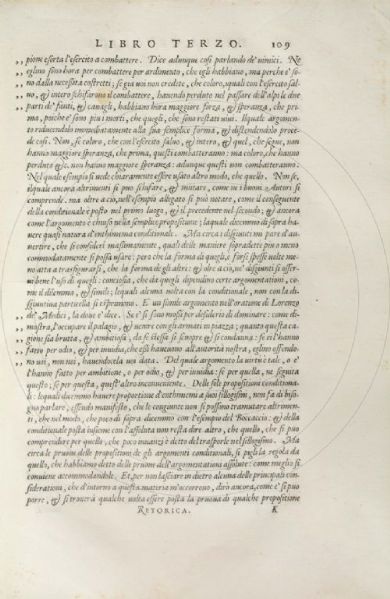 LIBRO TERZO. 109
,, gione esorta l'esercito a combattere. Dice adunque così parlando de' nimici. Ne
,, eglino sono hora per combattere per ardimento, che egli habbiano, ma perche e' so-
,, no dalla necessità costretti; se già voi non credete, che coloro, quali con l'esercito sal-
,, vo, & intero schifarono il combattere, havendo perduto nel passare dell'alpi le due
,, parti de' fanti, & cavagli, habbiano hora maggiore forza, & speranza, che pri-
,, ma, poiche e' sono piu i morti, che quegli, che sono restati vivi. Il quale argomen-
to riducendosi immediatamente alla sua semplice forma, & distendendosi proce-
de così. Non, se coloro, che con l'esercito salvo, & intero, & quel, che segue, non
hanno maggiore speranza, che prima, questi combatteranno: ma coloro, che hanno
perduto &c. non hanno maggiore speranza: adunque questi non combatteranno:
Nel quale esempio si vede chiaramente essere usato altro modo, che quello. Non se,
il quale ancora altrimenti si puo schifare, & mutare, come ne i buoni Autori si
comprende. ma oltre a ciò, nell'esempio allegato si può notare, come il conseguente
della conditionale è posto nel primo luogo, & il precedente nel secondo; & ancora
come l'argomento è chiuso nella semplice propositione; la quale dicemmo di sopra ha-
vere quasi natura d'enthimema conditionale. Ma circa i disgiunti mi pare d'au-
vertire, che si consideri massimamente, quali delle maniere sopradette piu o meno
commodamente si possa usare: però che la forma di quegli, è forse spesse volte me-
no atta a trasfigurarsi, che la forma de gli altri: & oltre a ciò, ne' disgiunti si osser-
verà bene l'uso di quegli: conciosia, che da quegli dependino certe argomentationi, co-
me il dilemma, & simili; le quali alcuna volta con la conditionale, non con la di-
sgiuntiva particella si esprimono. E' un simile argomento nell'oratione di Lorenzo
,, de' Medici, la dove e' dice. Se e' si sono mossi per desiderio di dominare: come di-
,, mostra, l'occupare il palagio, & venire con gli armati in piazza; quanto questa ca-
,, gione sia brutta, & ambitiosa, da se stessa si scuopre & si condanna: se ei l'hanno
,, fatto per odio, & per invidia, che essi havevano all'autorità nostra, eglino offendo-
,, no voi, non noi, havendocela voi data. Del quale argomento la virtù è tale, o e'
l'hanno fatto per ambitione, o per odio, & per invidia: se per quella, ne seguita
questo; se per questa, quest'altro inconveniente. Delle sole propositioni conditiona-
li: le quali dicemmo havere proportione d'enthimema a suoi sillogismi, non fa di biso-
gno parlare, essendo manifesto, che le congiunte non si possono tramutare altrimen-
ti, che nel modo, che poco di sopra dicemmo con l'esempio del Boccaccio; & della
conditionale posta insieme con l'assoluta non resta dire altro, che quello, che si puo
comprendere per quello, che poco innanzi è detto del trasporle nel sillogismo. Ma
circa le pruove delle propositioni de gli argomenti conditionali, si pigli la regola da
quello, che habbiamo detto delle pruove dell'argomentationi assolute: come meglio si
conviene accommodandole. Et, per non lasciare in dietro alcuna delle principali con-
siderationi, che d'intorno a questa materia m'occorrono, dirò ancora, come e' si può
porre, & si trouerrà qualche volta essere posta la pruova di qualche propositione
RETORICA. K